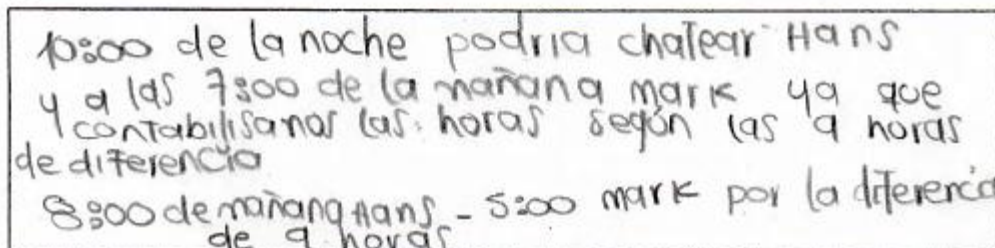 10:00 de la noche podria chatear Hans
y a las 7:00 de la mañana mark ya que
contabilisanos las horas según las 9 horas
de diferencia
8:00 de mañana Hans - 5:00 mark por la diferencia
de 9 horas